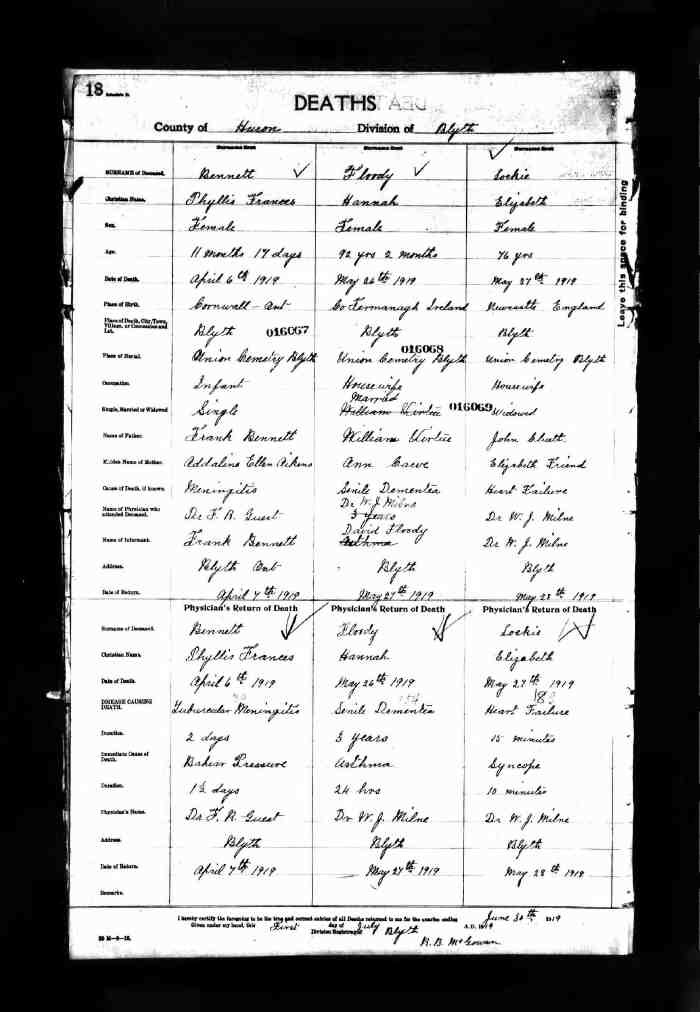 18
DEATHS
County of Huron Division of Blyth
SURNAME of Deceased. Bennett Floody Lockie
Christian Name. Phyllis Frances Hannah Elizabeth
Sex. Female Female Female
Age. 11 months 17 days 92 yrs 2 months 76 yrs
Date of Death. April 6th 1919 May 26th 1919 May 27th 1919
Place of Birth. Cornwall - Ont Co Fermanagh Ireland England
Place of Death, City, Town, Village, or Concession and Lot. Blyth 016067 Blyth Blyth
016068
Place of Burial. Union Cemetry Blyth Union Cemetry Blyth Union Cemetry Blyth
Occupation. Infant Housewife Housewife
Married
Single, Married or Widowed Single William Virtue 016069 Widowed
Name of Father. Frank Bennett William Virtue John
Maiden Name of Mother. Addaline Ellen Aikens Ann Elizabeth Friend
Cause of Death, if known. Meningitis Senile Dementea Heart Failure
Dr W. J. Milne
Name of Physician who attended Deceased. Dr F. R. Guest 3 years Dr W. J. Milne
David Floody
Name of Informant. Frank Bennett Asthma Dr W. J. Milne
Address. Blyth Ont Blyth Blyth
Date of Return. April 7th 1919 May 27th 1919 May 28th 1919
Physician's Return of Death Physician's Return of Death Physician's Return of Death
Surname of Deceased. Bennett Floody Lockie
Christian Name. Phyllis Frances Hannah Elizabeth
Date of Death. April 6th 1919 May 26th 1919 May 27th 1919
154
DISEASE CAUSING DEATH. Tubercular Meningitis Senile Dementea Heart Failure
Duration. 2 days 3 years 15 minutes
Immediate Cause of Death. Pressure Asthma Syncope
Duration. 1½ days 24 hrs 10 minutes
Physician's Name. Dr F. R. Guest Dr W. J. Milne Dr W. J. Milne
Address. Blyth Blyth Blyth
Date of Return. April 7th 1919 May 27th 1919 May 28th 1919
Remarks.
I hereby certify the foregoing to be the true and correct entries of all Deaths returned to me for the quarter ending June 30th 1919
Given under my hand, this First day of July A.D. 1919
Division Registrar of Blyth
R. B. McGowan
Leave this space for binding